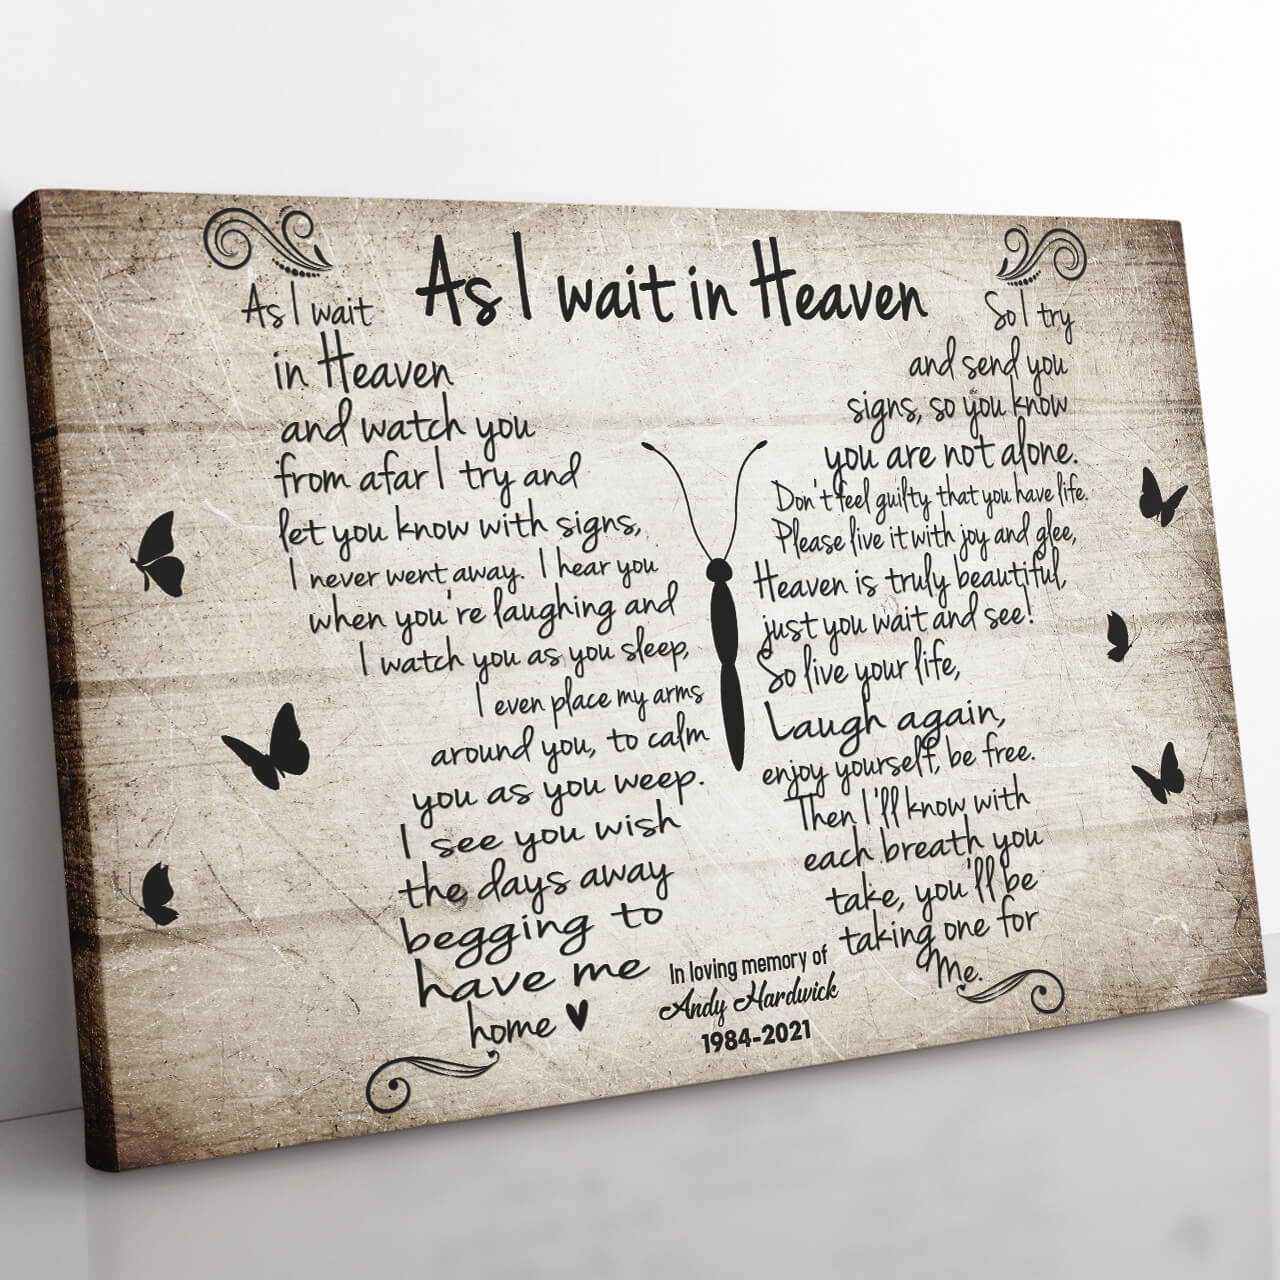 As I wait in Heaven
As I wait
in Heaven
and watch you
from afar I try and
let you know with signs,
I never went away. I hear you
when you're laughing and
I watch you as you sleep,
I even place my arms
around you, to calm
you as you weep.
I see you wish
the days away
begging to
have me
home
So I try
and send you
signs, so you know
you are not alone.
Don't feel guilty that you have life.
Please live it with joy and glee,
Heaven is truly beautiful,
just you wait and see!
So live your life,
Laugh again,
enjoy yourself, be free.
Then I'll know with
each breath you
take, you'll be
taking one for
Me.
In loving memory of
Andy Hardwick
1984-2021